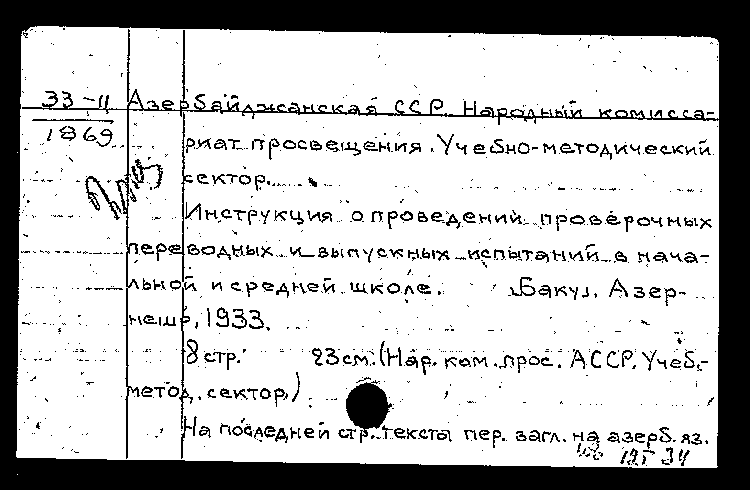 33-11 Азербайджанская ССР. Народный комисса-
1869
риат просвещения. Учебно-методический
сектор.
Инструкция о проведений проверочных
переводных и выпускных испытаний в нача-
льной и средней школе. Баку, Азер-
нешр, 1933.
8 стр. 23 см. (Нар. ком. прос. АССР. Учеб.-
метод. сектор.)
На последней стр. тексты пер. загл. на азерб. яз.
34